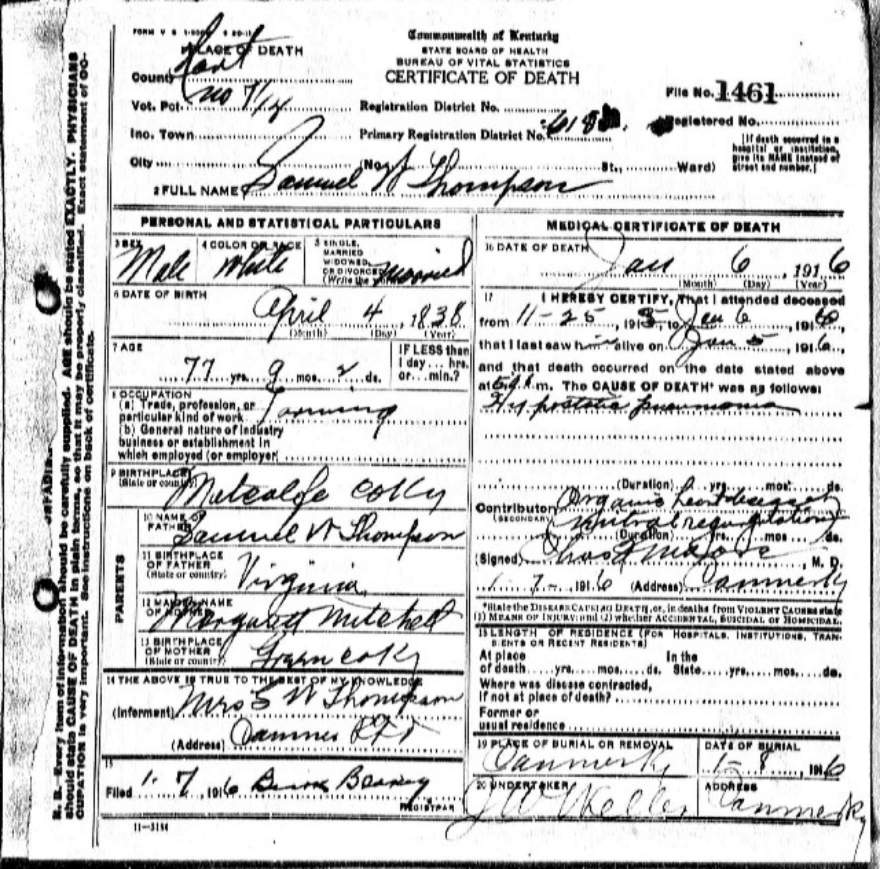 FORM V S 1-
PLACE OF DEATH
County Hart
Vot. Pct. No 7/14
Inc. Town
City
Commonwealth of Kentucky
STATE BOARD OF HEALTH
BUREAU OF VITAL STATISTICS
CERTIFICATE OF DEATH
File No. 1461
Registration District No.
Registered No.
Primary Registration District No.
(No. St., Ward)
[If death occurred in a
hospital or institution,
give its NAME instead of
street and number.]
2 FULL NAME Samuel W Thompson
PERSONAL AND STATISTICAL PARTICULARS
3 SEX
Male
4 COLOR OR RACE
White
5 SINGLE,
MARRIED
WIDOWED
OR DIVORCED
(Write the word) Married
6 DATE OF BIRTH
April 4, 1838
(Month) (Day) (Year)
7 AGE
77 yrs. 9 mos. 2 ds.
IF LESS than
1 day... hrs.
or... min.?
8 OCCUPATION
(a) Trade, profession, or
particular kind of work Farming
(b) General nature of industry
business or establishment in
which employed (or employer)
9 BIRTHPLACE
(State or country) Metcalfe Co Ky
PARENTS
10 NAME OF
FATHER Samuel W Thompson
11 BIRTHPLACE
OF FATHER
(State or country) Virginia
12 MAIDEN NAME
OF MOTHER Margarett Mitchell
13 BIRTHPLACE
OF MOTHER
(State or country) Green Co Ky
14 THE ABOVE IS TRUE TO THE BEST OF MY KNOWLEDGE
(Informant) Mrs S W Thompson
(Address) Canmer
15
Filed 1. 7, 1916
REGISTRAR
11-3184
MEDICAL CERTIFICATE OF DEATH
16 DATE OF DEATH
Jan 6, 1916
(Month) (Day) (Year)
17 I HEREBY CERTIFY, That I attended deceased
from 11-25, 1915 to Jan 6, 1916,
that I last saw him alive on Jan 5, 1916,
and that death occurred on the date stated above
at m. The CAUSE OF DEATH* was as follows:
Hypostatic pneumonia
(Duration) yrs. mos. ds.
Contributory Organic heart disease
(SECONDARY) Mitral regurgitation
(Duration) yrs. mos. ds.
(Signed) Chas, M. D.
1. 7-, 1916 (Address) Canmer Ky
*State the DISEASE CAUSING DEATH, or, in deaths from VIOLENT CAUSES state
(1) MEANS OF INJURY; and (2) whether ACCIDENTAL, SUICIDAL or HOMICIDAL.
18 LENGTH OF RESIDENCE (FOR HOSPITALS, INSTITUTIONS, TRAN-
SIENTS OR RECENT RESIDENTS)
At place In the
of death yrs. mos. ds. State yrs. mos. ds.
Where was disease contracted,
If not at place of death?
Former or
usual residence
19 PLACE OF BURIAL OR REMOVAL
Canmer Ky
DATE OF BURIAL
1-8, 1916
20 UNDERTAKER
J W Keller
ADDRESS
Canmer Ky
N. B.—Every item of information should be carefully supplied. AGE should be stated EXACTLY. PHYSICIANS
should state CAUSE OF DEATH in plain terms, so that it may be properly classified. Exact statement of OC-
CUPATION is very important. See instructions on back of certificate.